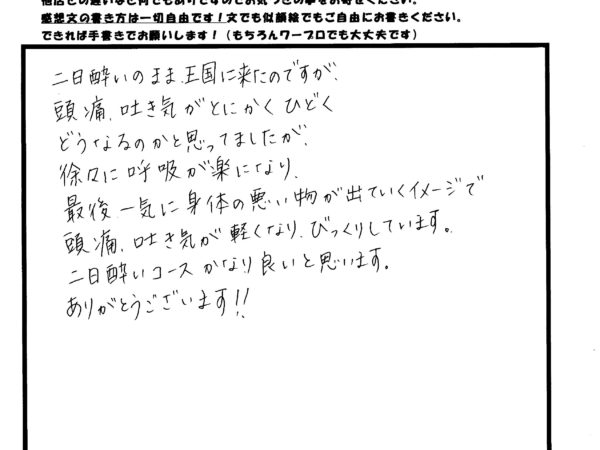 他店との違いなど何でもありですのでお気づきの事をお寄せください。
感想文の書き方は一切自由です！文でも似顔絵でもご自由にお書きください。
できれば手書きでお願いします！（もちろんワープロでも大丈夫です）
二日酔いのまま、王国に来たのですが、
頭痛、吐き気がとにかくひどく
どうなるのかと思ってましたが、
徐々に呼吸が楽になり、
最後一気に身体の悪い物が出ていくイメージで
頭痛、吐き気が軽くなり、びっくりしています。
二日酔いコースかなり良いと思います。
ありがとうございます!!